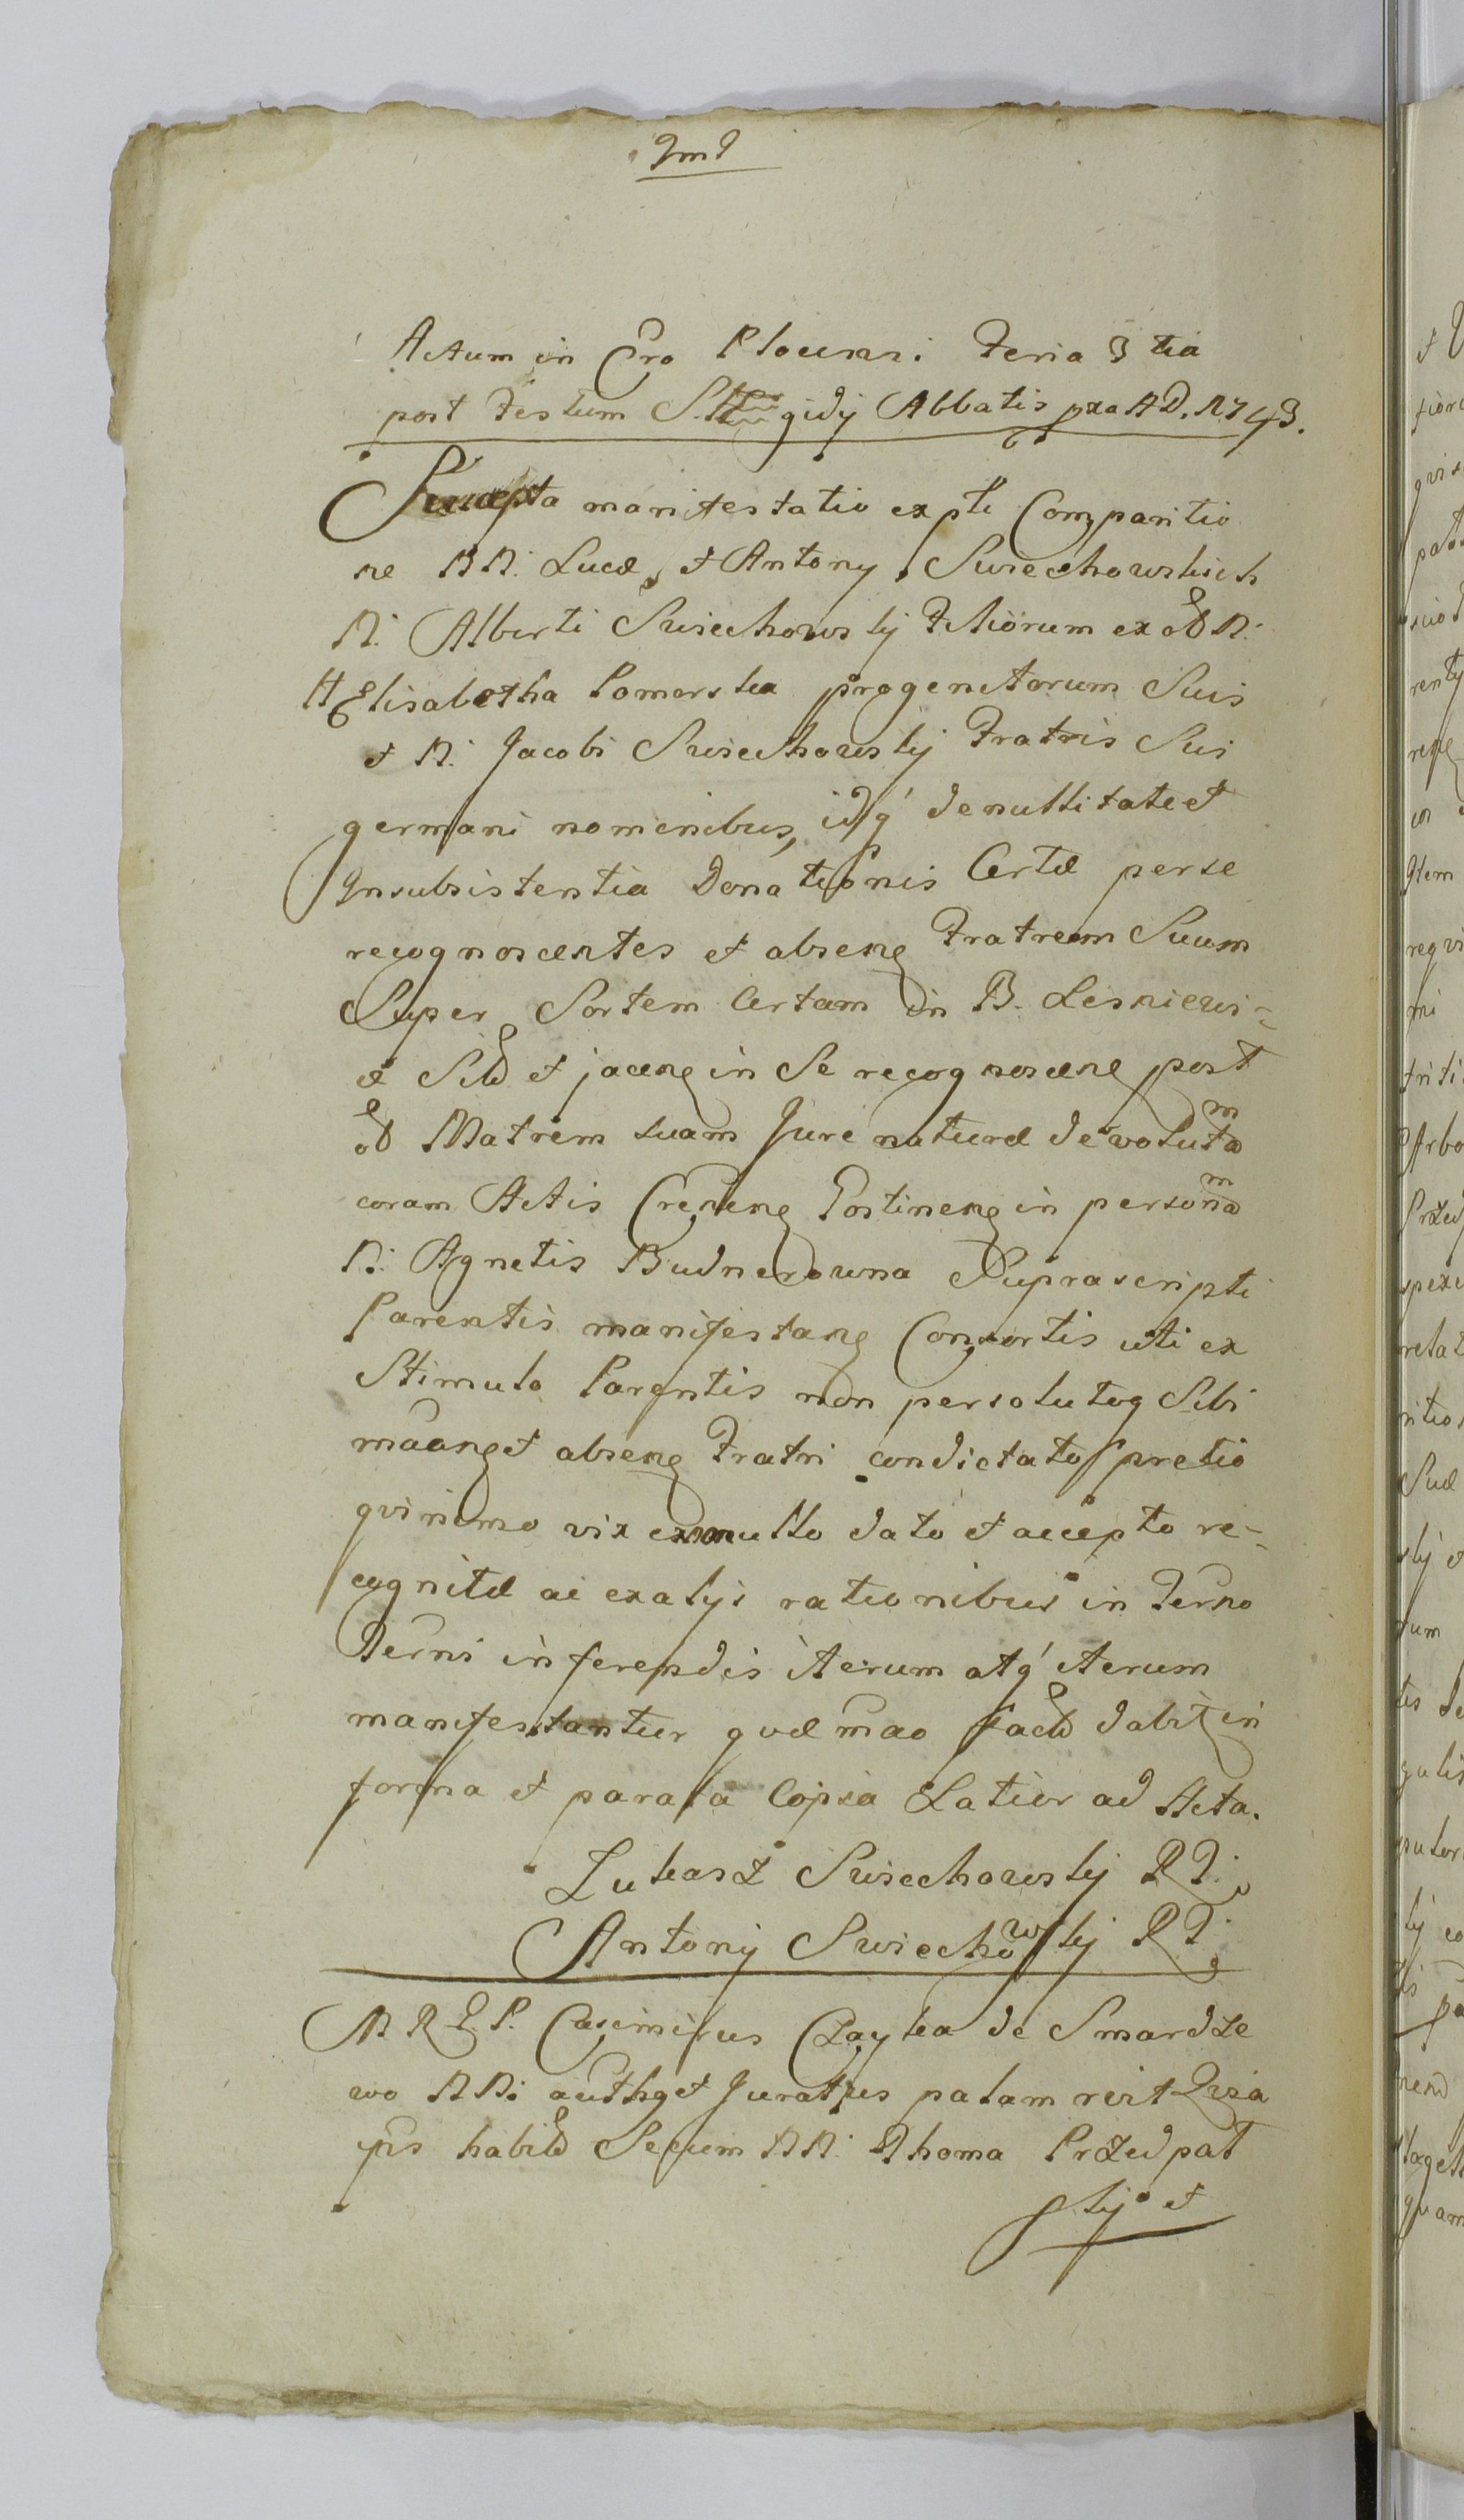 Actum in Cro Plocensi Feria 3 tia
post Festum S. gidij Abbatis pxa A D. 1743.
Suscepta manifestatio ex pte Comparitio
ne NN. Lucæ, et Antony Swiechowskich
N. Alberti Swiechowskij Filiorum ex od N.
Elisabetha Pomorska progenitorum Suis
et N. Jacobi Swiechowskij Fratris Sui
germani nominibus, idq' de nullitate et
Insubsistentia Donationis Certæ per se
recognoscentes et absen Fratrem Suum
Super Sortem Certam in B. Lesniewi-
æ Sitd et jacen in Se recognoscen post
od Matrem suam Jure naturæ devoluta m
coram Actis Crenen Postinen in persona m
N. Agnetis Budnerowna Suprascripti
Parentis manifestan Consortis uti ex
Stimulo Parentis non persoluto q Sibi
maan et absen Fratri condictato pretio
qvinimo vix ex nullo dato et accepto re-
cognitæ ac ex alijs rationibus in Termo
Termi inferendis iterum atq' iterum
manifestantur qvæ mao facd dabit in
forma et parata Copia Latior ad Acta.
Lukasz Swiechowskij
Antonij Swiechowskij
Casimirus Czayka de Smardze
wo NN. auth et Juratus palam rcvit Qvia
ips habitd Secum NN. Thoma Przedpat
skij et